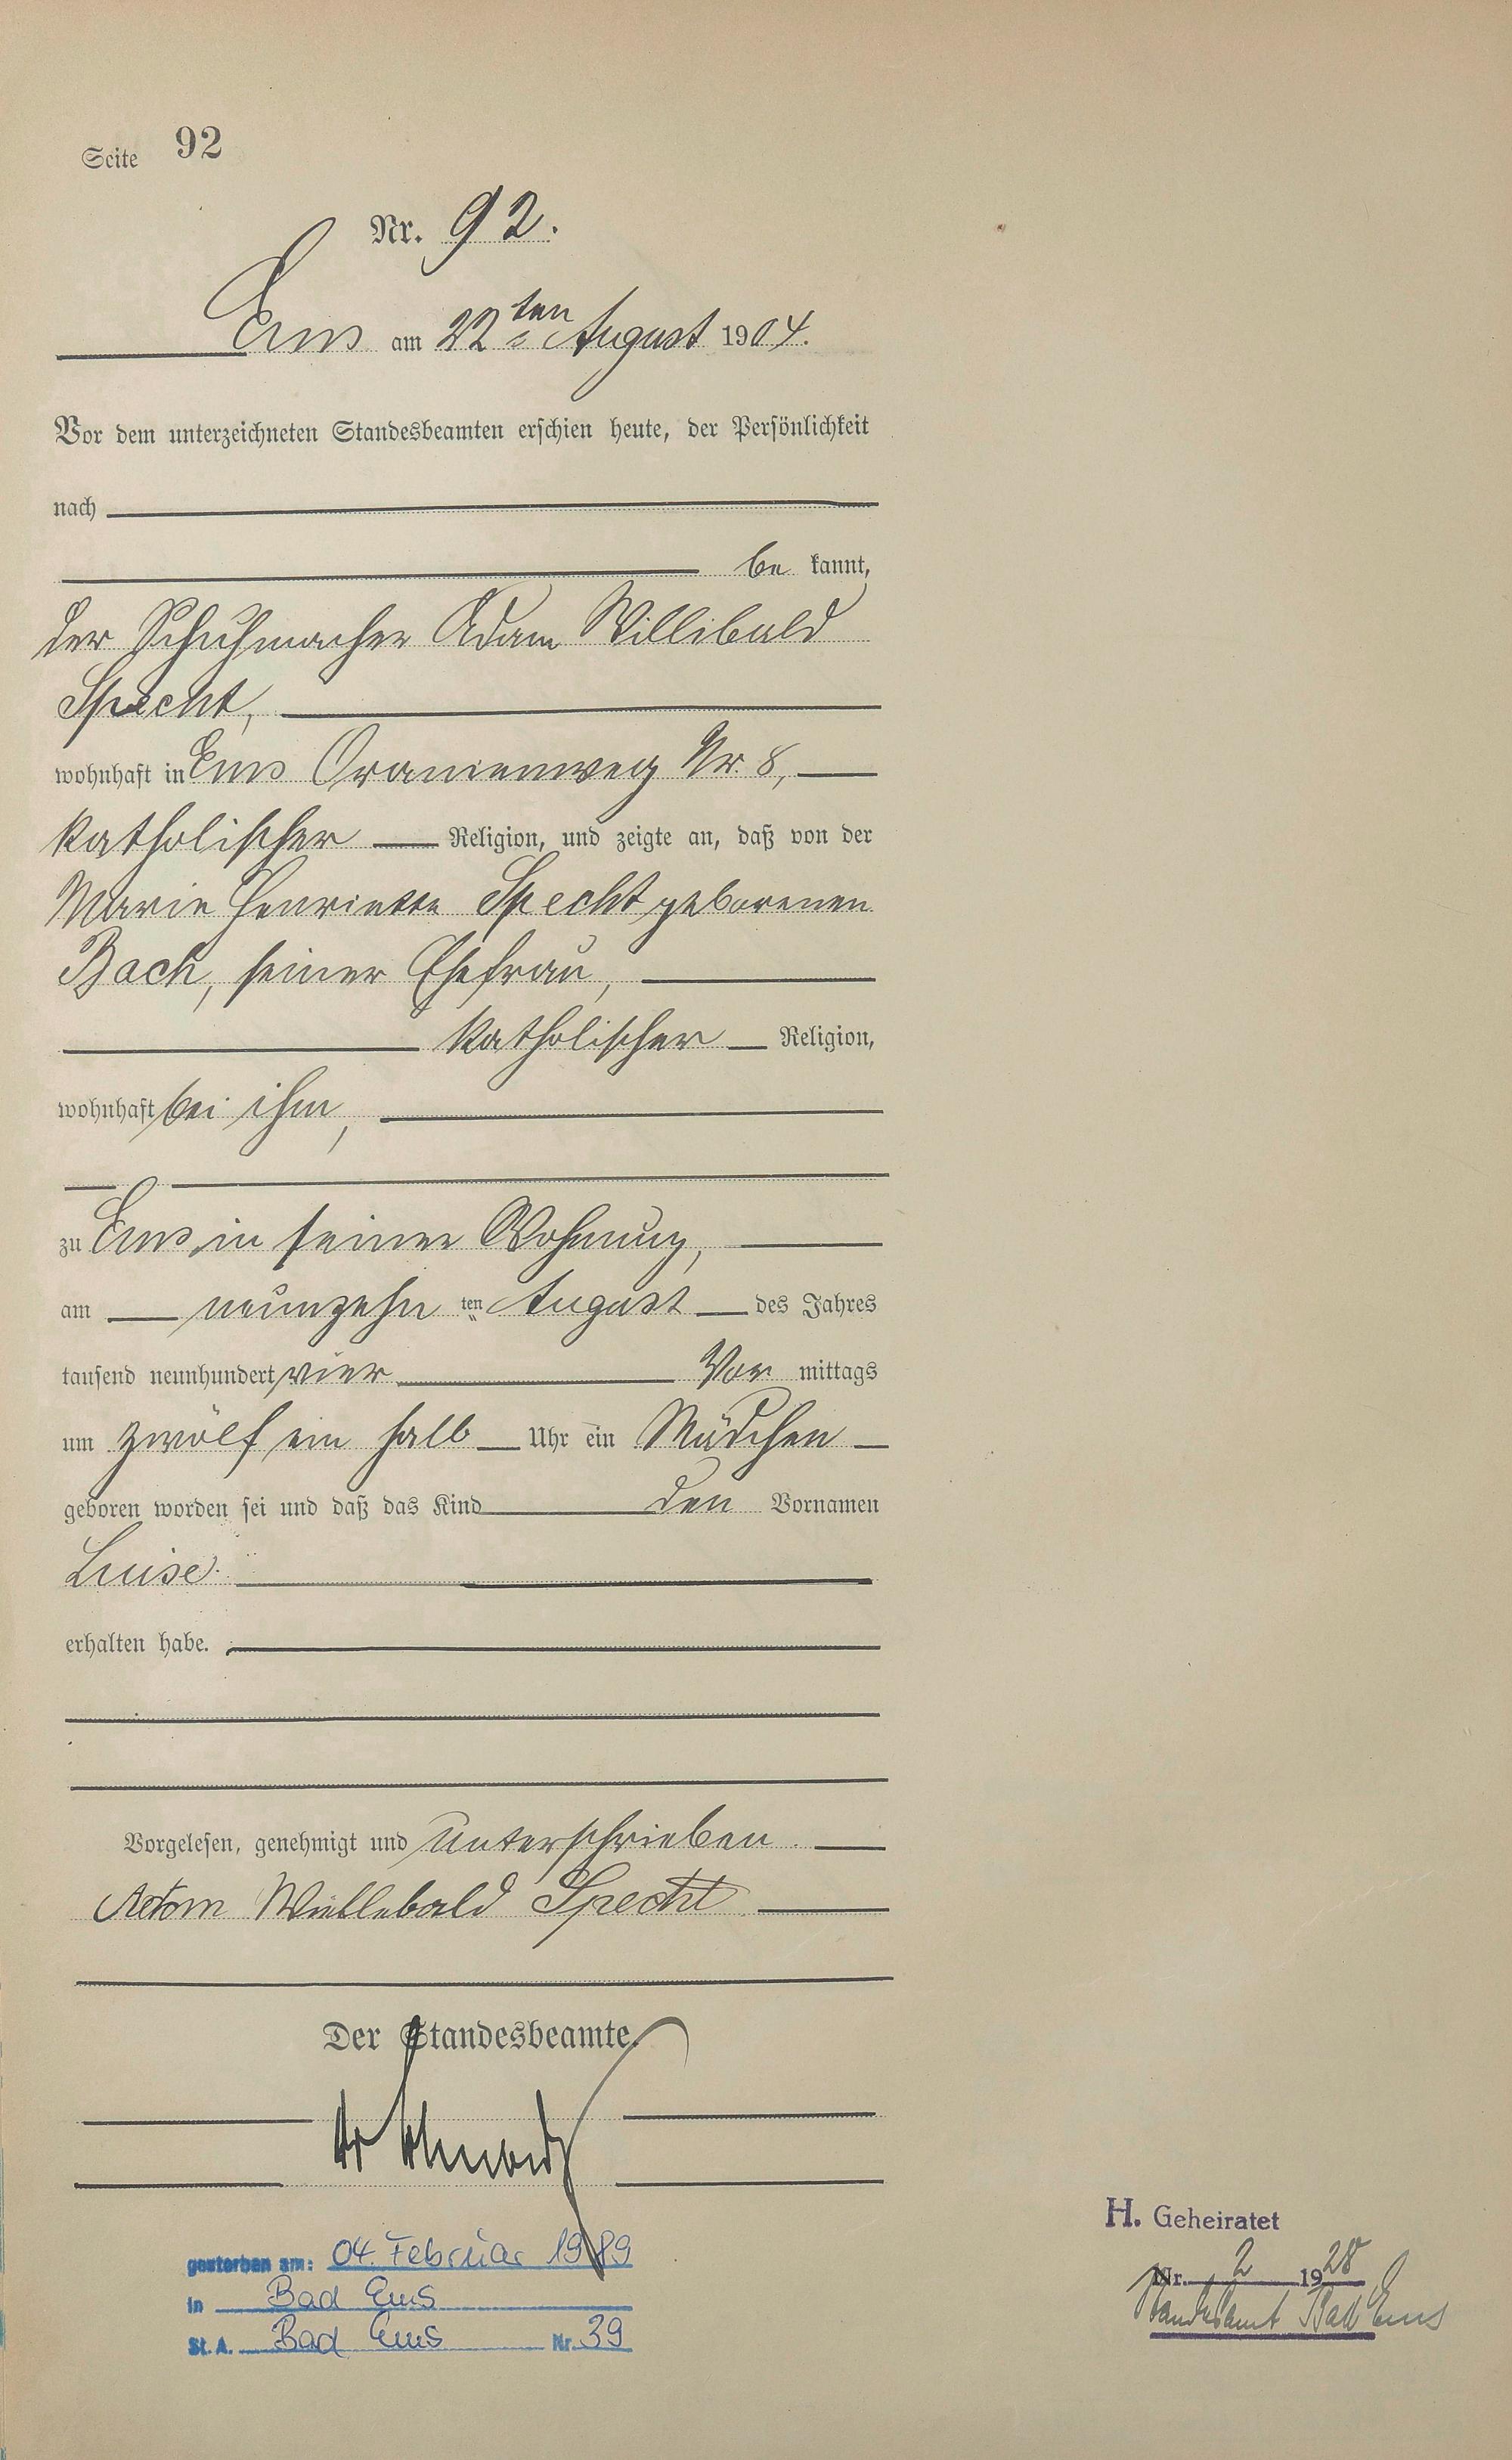 Seite 92
Nr. 92.
Ems am 22ten August 1904.
Vor dem unterzeichneten Standesbeamten erschien heute, der Persönlichkeit
nach
be kannt,
der Schuhmacher Adam Willibald
Specht,
wohnhaft in Ems Oranienweg Nr. 8,
katholischer Religion, und zeigte an, daß von der
Marie Henriette Specht geborenen
Bach, seiner Ehefrau,
katholischer Religion,
wohnhaft bei ihm,
zu Ems, in seiner Wohnung,
am neunzehn ten August des Jahres
tausend neunhundert vier Vor mittags
um zwölf ein halb Uhr ein Mädchen
geboren worden sei und daß das Kind den Vornamen
Luise
erhalten habe.
Vorgelesen, genehmigt und unterschrieben.
Adam Willebald Specht
Der Standesbeamte.
gestorben am: 04. Februar 1989
in Bad Ems
St. A. Bad Ems Nr. 39
H. Geheiratet
Nr. 2 1928
Standesamt Bad Ems